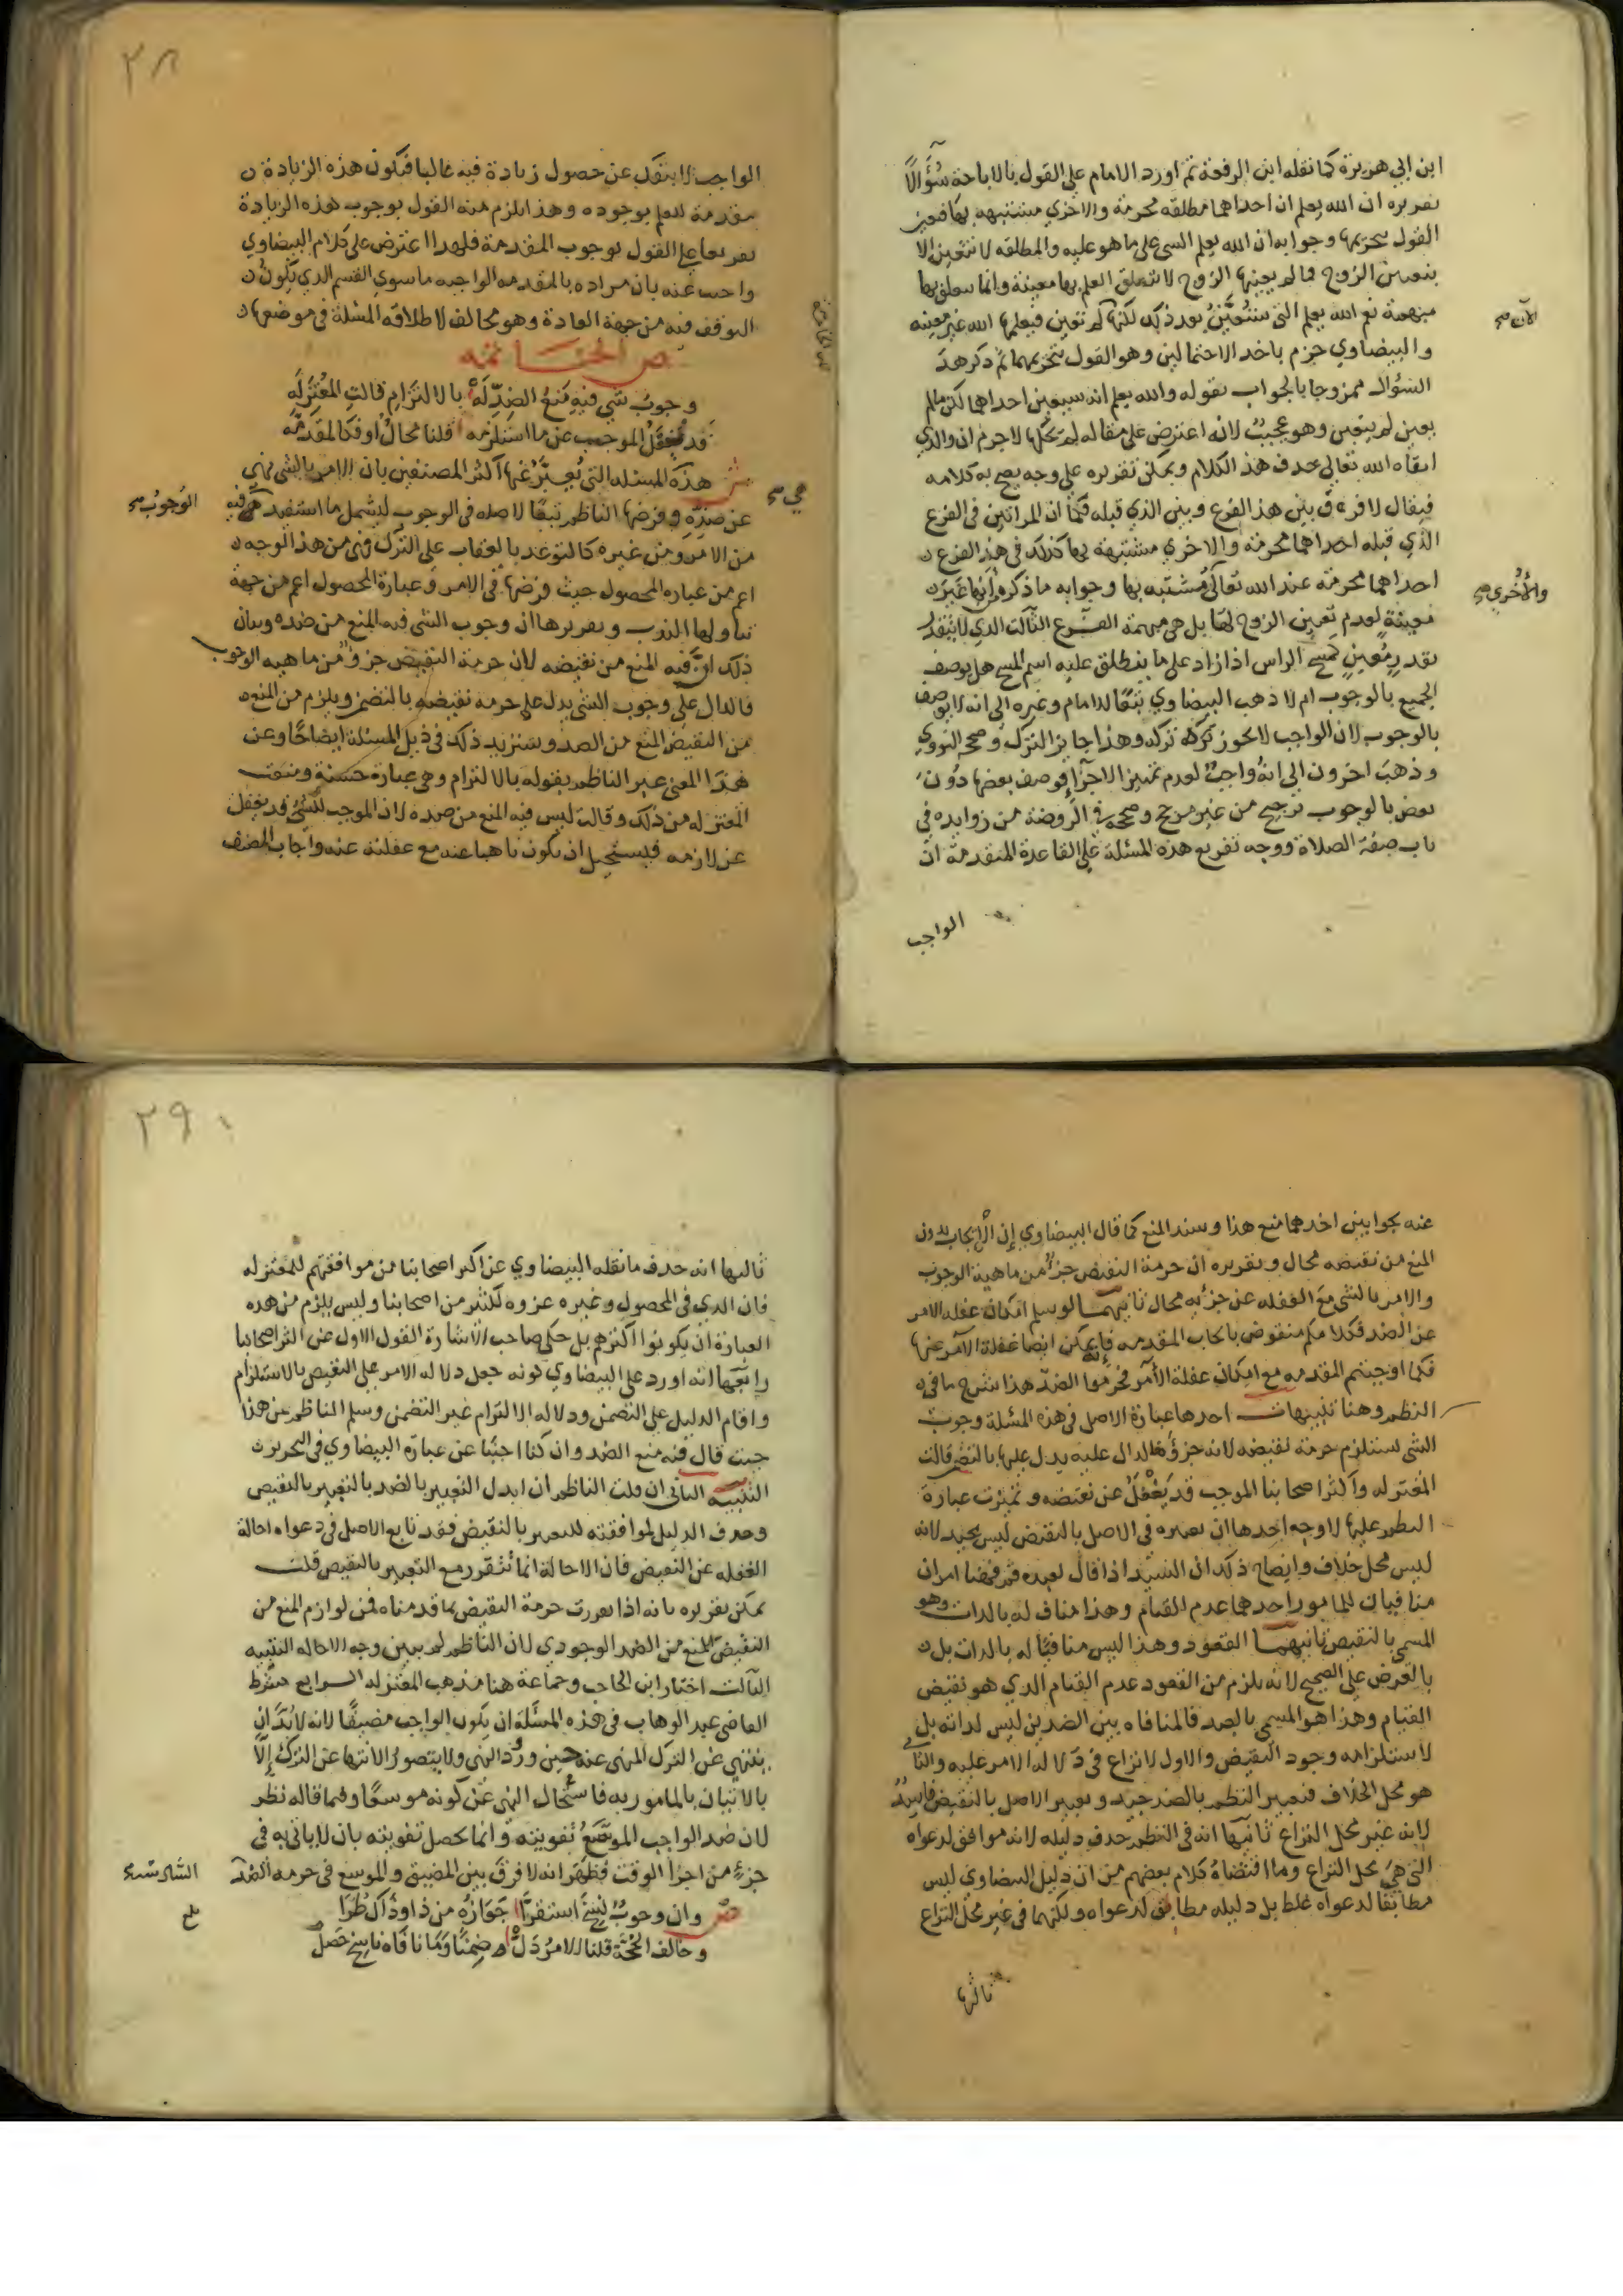 ابن ابي هريرة كما نقله ابن الرفعة ثم اورد الامام على القول بالاباحة سُؤَالًا
تقريره ان الله يعلم ان احداهما مطلقه محرمة والاخري مشتبهه بها فتعين
القول بتحريمها وجوابه ان الله يعلم الشي على ما هو عليه والمطلقه لا تتعين الا
بتعيين الزوج فما لم يعينها الزوج لا يتعلق العلم بها معينة وانما يتعلق بها
مبهمة نعم الله يعلم التي ستُعَيَّنُ بعد ذلك لكنها لم تعين فيعلمها الله غير معينه
الآن صح
والبيضاوي جزم باحد الاحتمالين وهو القول بتحريمهما ثم ذكر هذ
السُؤال ممزوجا بالجواب بقوله والله يعلم انه سيعين احداهما لكن ما لم
يعين لم يتعين وهو عجيبٌ لانه اعترض على مقاله لم يحكها لا جرم ان والدي
ابقاه الله تعالى حذف هذ الكلام ويمكن تقريره على وجه يصح به كلامه
فيقال لا فرق بين هذ الفرع وبين الذي قبله فكما ان المراتين في الفرع
الذي قبله احداهما محرمة والاخري مشتبهة بها كذلك في هذ الفرع
احداهما محرمة عند الله تعالى مُشتَبه بها وجوابه ما ذكره انها غير
والأخري صح
معينةٍ لعدم تعيين الزوج لها بل هي مبهمة الفرع الثالث الذي لا يتقدر
بقدرٍ مُعينٍ كمسح الراس اذا زاد على ما ينطلق عليه اسم المسح هل يوصف
الجميع بالوجوب ام لا ذهب البيضاوي تبعًا للامام وغيره الى انه لا يوصف
بالوجوب لان الواجب لا يجوز تركه وهذا جايز الترك وصححه النووي
وذهبَ اخرون الى انهُ واجبٌ لعدم تمييز الاجزآ فوصف بعضها دُون
بعض بالوجوب ترجيح من غير مرجح وصححه في الرَوضة من زوايده في
باب صفة الصلاة ووجه تفريع هذه المسئلة على القاعدة المتقدمة ان
الواجب
٢٨
الواجب لا ينفك عن حصول زيادة فيه غالبا فتكون هذه الزيادة
مقدمة للعلم بوجوده وهذا يلزم منه القول بوجوب هذه الزيادة
تفريعا على القول بوجوب المقدمة فلهذا اعترض على كلام البيضاوي
واجيب عنه بان مراده بالمقدمه الواجبه ما سوي القسم الذي يكُونُ
التوقف فيه من جهة العادة وهو مخالف لاطلاقه المسئلة في موضعها
ص الخامسة
وجوبُ شي فيهِ مَنعُ الضِدِّ لَهْ بالالتزام قالتِ المُعتَزِلَه
قد يغفلُ الموجب عن ما استلزمه قلنا محالٌ او فكالمقدِّمَه
ش هذه المسئله التي يُعَبِّرُ عنها اكثر المصنفين بان الامر بالشي نهي
هي صح
عن ضدِّهِ وفرضها الناظم تبعًا لاصله في الوجوب ليشمل ما استفيد فيه
الوُجوبُ صح
من الامر ومن غيره كالتوعد بالعقاب على الترك فهي من هذ الوجه
اعم من عباره المحصول حيث فرضها في الامر وعبارة المحصول اعم من جهة
تناولها الندب وتقريرها ان وجوب الشي فيه المنع من ضده وبيان
ذلك انَّ فيه المنع من نقيضه لان حرمة النقيض جزؤٌ من ماهيه الوجوب
فالدال على وجوب الشي يدل على حرمه نقيضه بالتضمن ويلزم من المنع
من النقيض المنع من الضد وسنزيد ذلك في ذيل المسئلة ايضاحًا وعن
هذَا المعنى عبر الناظم بقوله بالالتزام وهي عبارة حسنة ومنعت
المعتزله من ذلك وقالت ليس فيه المنع من ضده لان الموجب للشي قد يغفل
عن لازمه فيستحيل ان يكون ناهيا عنه مع غفلته عنه واجاب المصنف
عنه بجوابين احدهما منع هذا وسند المنع كما قال البيضاوي إن الإيجاب بدون
المنع من نقيضه محال وتقريره ان حرمة النقيض جزؤٌ من ماهية الوجوب
والامر بالشي معَ الغفله عن جزئه محال ثانيهما لو سلم امكان غفله الامر
عن الضد فكلامكم منقوض بايجاب المقدمه فإنه يمكن ايضًا غفلة الآمر عنها
فكما اوجبتم المقدمه مع امكان غفلة الآمر فحرموا الضدّ هذا شرح ما في
النظم وهنا تنبيهات احدها عبارة الاصل في هذه المسئلة وجوبُ
الشي يستلزم حرمة نقيضه لانه جزؤه فالدال عليه يدل عليها بالتضمن قالت
المُعتزله واكثر اصحابنا الموجب قد يَغْفَلُ عن نقيضه وتميزت عبارة
النظم عليها لاوجه احدها ان تعبيره في الاصل بالنقيض ليس بجيد لانه
ليس محل خلاف وايضاح ذلك ان السَيّد اذا قال لعبده قم فههنا امران
منافيان للمامور احدهما عدم القيام وهذا مناف له بالذات وهو
المسمي بالنقيض ثانيهما القعود وهذا ليس منافيًا له بالذات بل
بالعَرض على الصحيح لانه يلزم من القعود عدم القيام الذي هو نقيض
القيام وهذا هو المسمي بالضد فالمنافاه بين الضدين ليس لذاته بل
لاستلزامه وجود النقيض والاول لا نزاع في دَلاله الامر عليه والثاني
هو محل الخلاف فتعبير النظم بالضد جيد وتعبير الاصل بالنقيض فاسِدٌ
لانه غير محل النزاع ثانيها انه في النظم حذف دليله لانه موافق لدعواه
التي هيَ محل النزاع وما اقتضاهُ كلام بعضهم من ان دليل البيضاوي ليس
مطابقًا لدعواه غلط بل دليله مطابق لدعواه ولكنهما في غير محل النزاع
ثالثها
٢٩
ثالثها انه حذف ما نقله البيضاوي عن اكثر اصحابنا من موافقتهم للمعتزله
فان الذي في المحصول وغيره عزوه لكثير من اصحابنا وليس يلزم من هذه
العبارة ان يكونوا اكثرهم بل حكى صاحب الاشارة القول الاول عن اكثر اصحابنا
رابعها انه اورد على البيضاوي كونه جعل دلاله الامر على النقيض بالاستلزام
واقام الدليل على التضمن ودلاله الالتزام غير التضمن وسلم الناظم من هذا
حيث قال فيه منع الضد وان كنا اجبنا عن عبارة البيضاوي في التحرير
التنبيه الثاني ان قلت الناظم ان ابدل التعبير بالضد بالتعبير بالنقيض
وحذف الدليل لموافقته للتعبير بالنقيض فقد تابع الاصل في دعواه احالة
الغفله عن النقيض فان الاحالة انما تُتقرر مع التعبير بالنقيض قلت
يمكن تقريره بانه اذا تقررت حرمة النقيض بما قدمناه فمن لوازم المنع من
النقيض المنع من الضد الوجودي لان الناظم لم يبين وجه الاحاله التنبيه
الثالث اختار ابن الحاجب وجماعة هنا مذهب المعتزله الرابع شرط
القاضي عبد الوهاب في هذه المسئلة ان يكون الواجب مضيقًا لانه لا بُدَّ ان
ينتهي عن الترك المنهي عنه حين ورُودِ النهي ولا يتصور الانتها عن الترك إلَّا
بالاتيان بالمامور به فاستُحال النهي عَن كونه موسعًا وفيما قاله نظر
لان ضد الواجب الموسَّعُ تفويته وانما يحصل تفويته بان لا ياتي به في
جزءٍ من اجزا الوقت فظهرَ انه لا فرق بين المضيق والموسع في حرمه الضد
ص وان وجوبٌ نُسِخَ استفرَّا جَوَازُه من ذا وذاك طُرَّا
وخالف الحُجَّة قلنا الامرُ دَلّ ضِمنًا وَمَا نافَاه ناسخ حَصَلْ